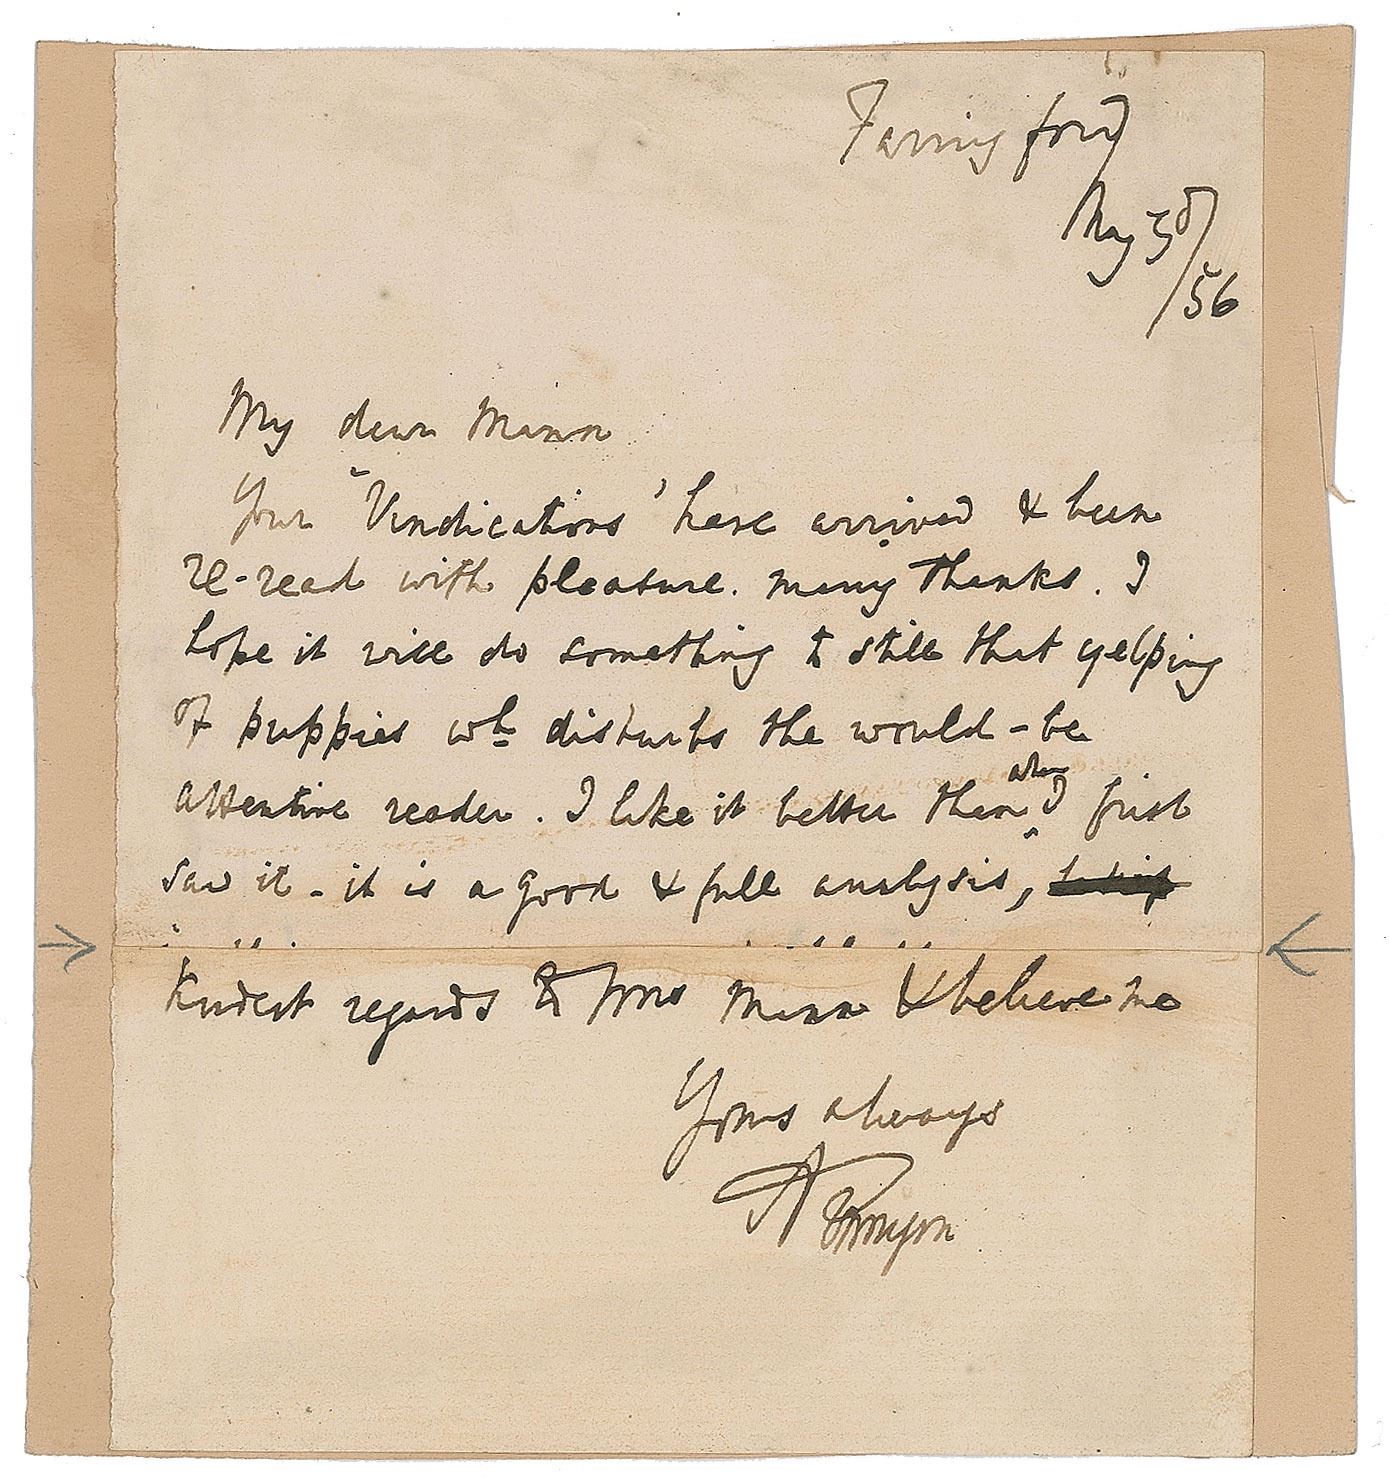 Farringford
May 3d/
/56
My dear Mann
Your "Vindications' have arrived & been
re-read with pleasure. many thanks. I
hope it will do something to still that yelping
of puppies wh disturbs the would-be
attentive reader. I like it better than when I first
saw it - it is a good & full analysis,
Kindest regards to Mrs Mann & believe me
Yours always
A Tennyson